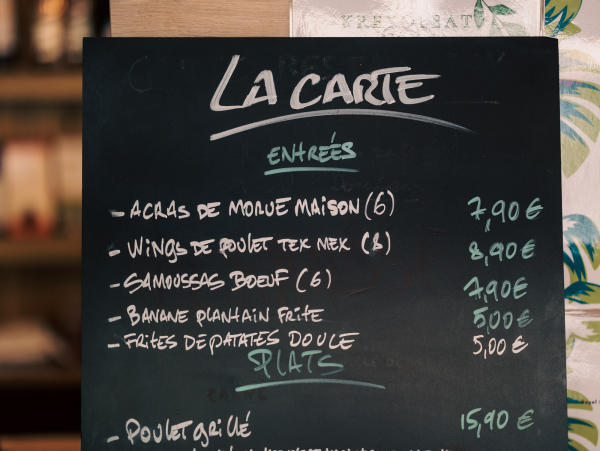 LA CARTE
ENTREÉS
- ACRAS DE MORUE MAISON (6) 7,90 €
- WINGS DE POULET TEX MEX (8) 8,90 €
- SAMOUSSAS BOEUF (6) 7,90 €
- BANANE PLANTAIN FRITE 5,00 €
- FRITES DE PATATES DOUCE 5,00 €
PLATS
- POULET GRILLÉ 15,90 €